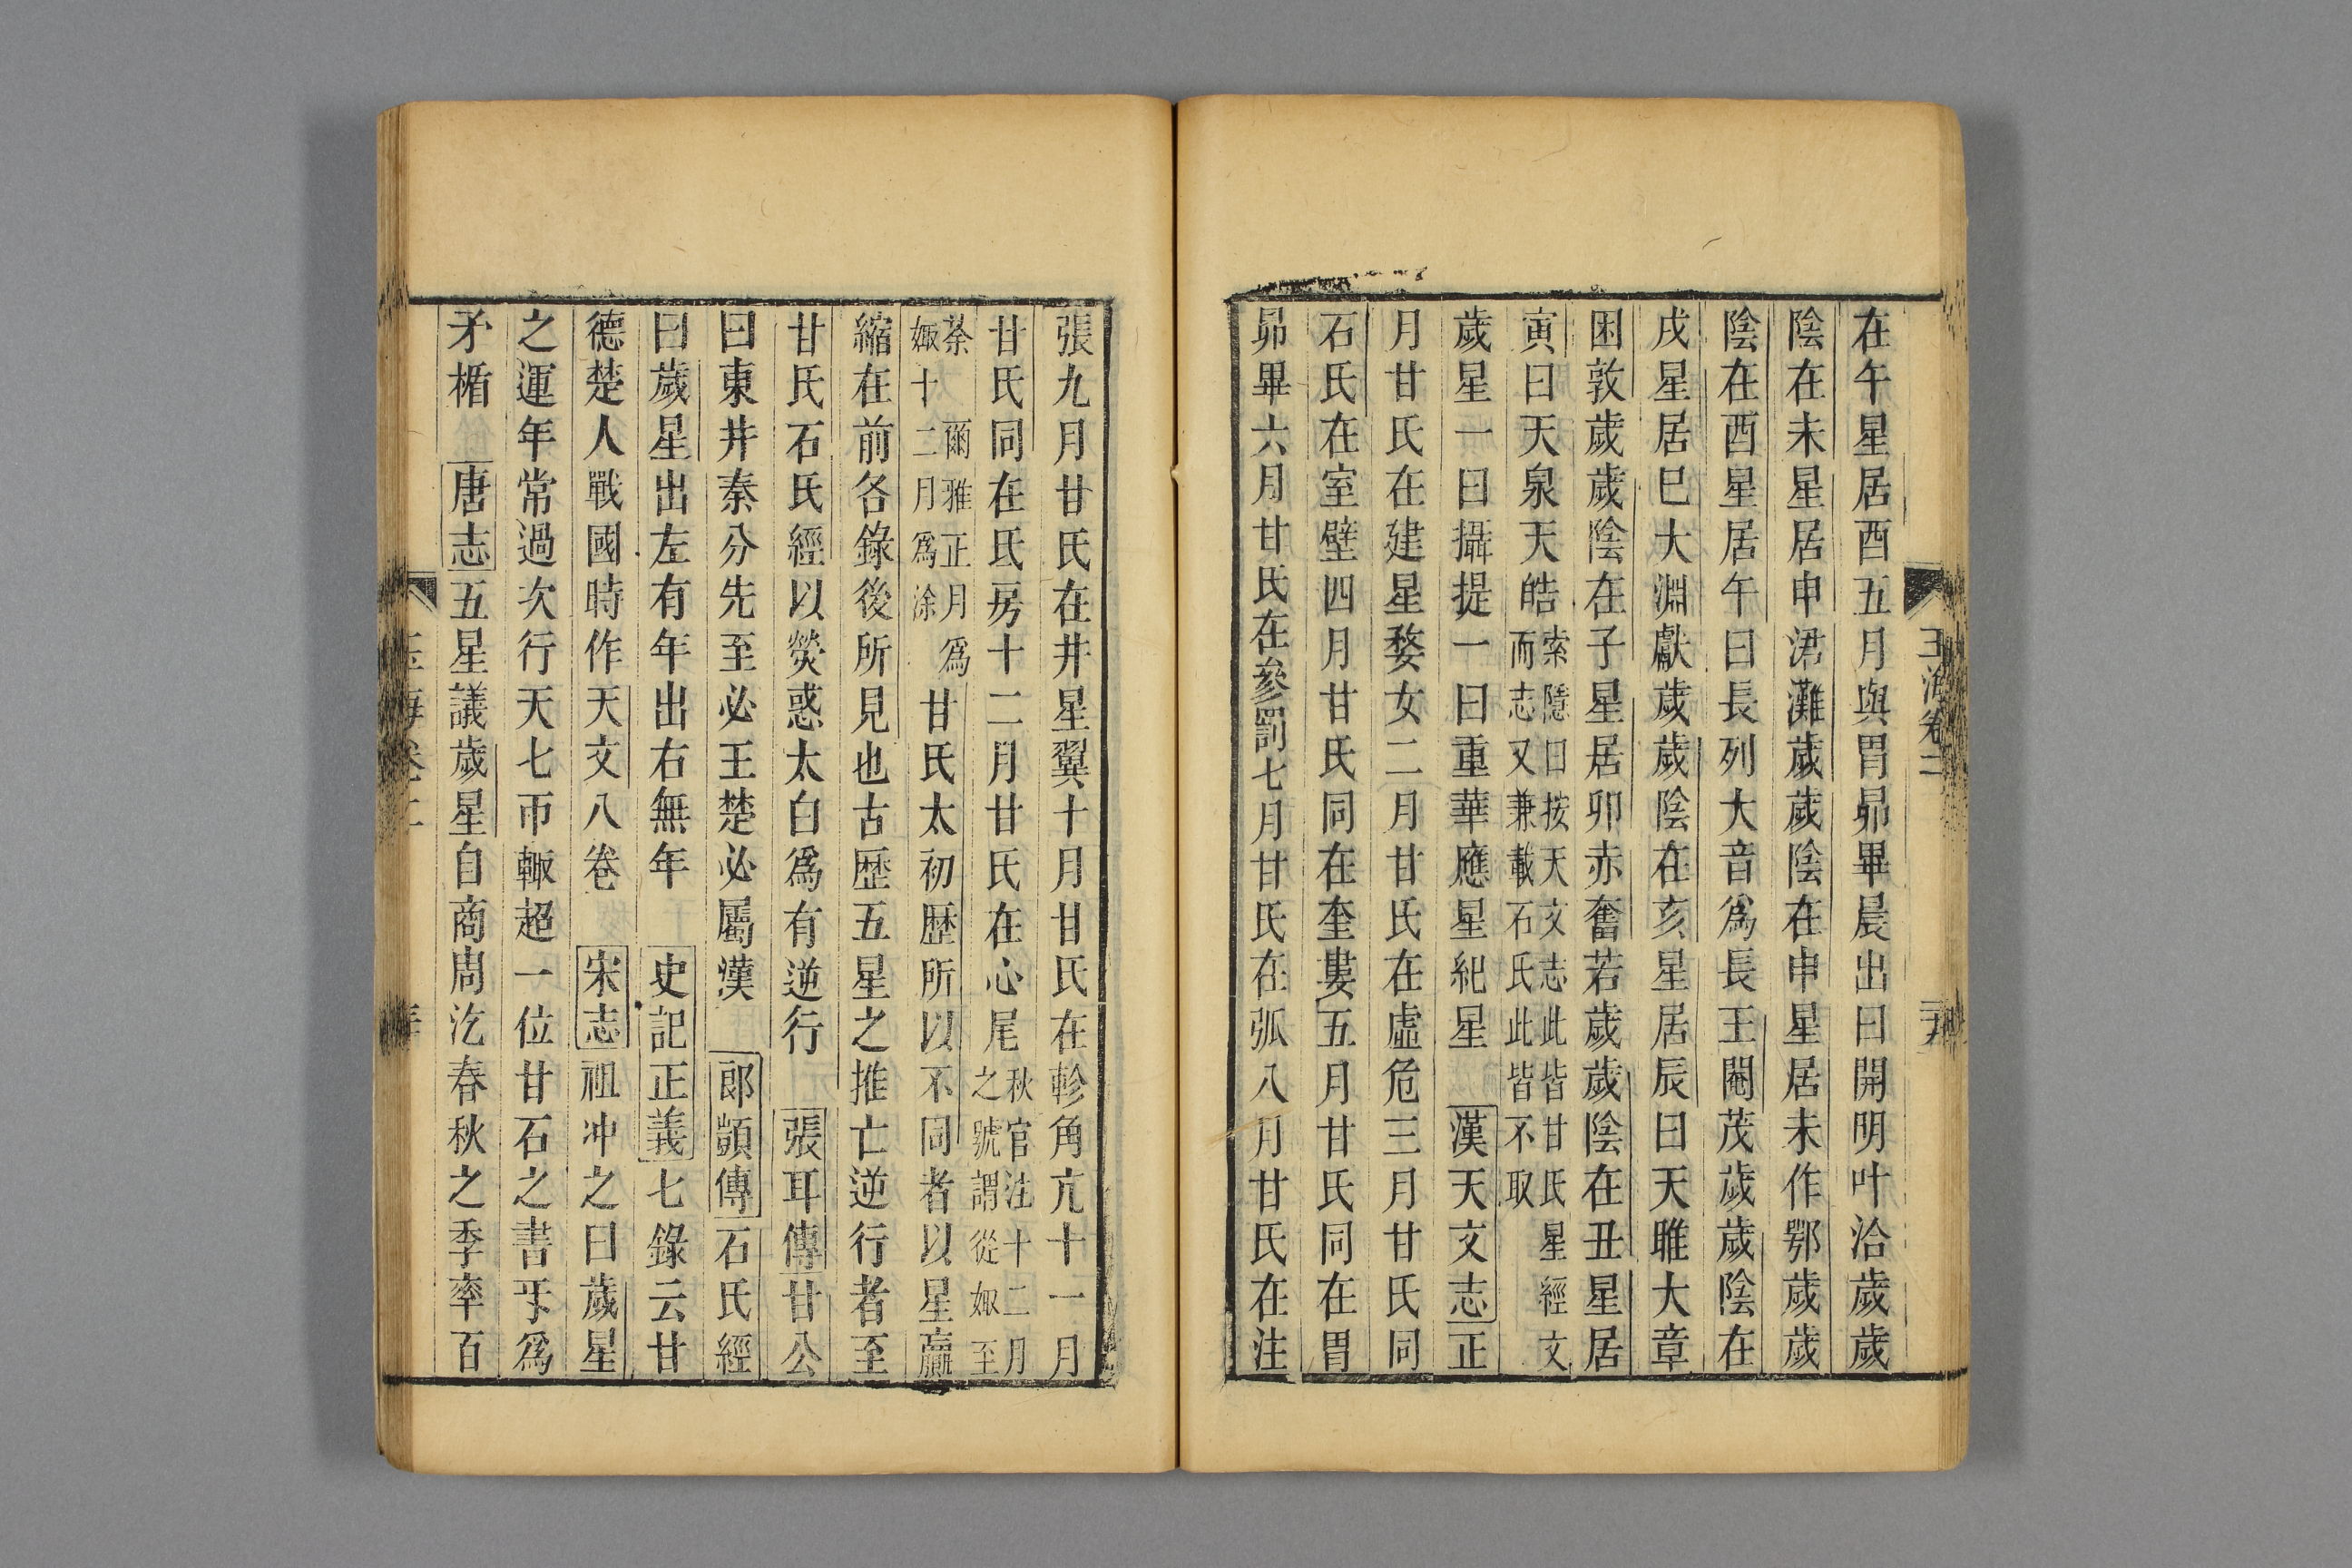 在午星居酉五月與胃昴畢晨出曰開明叶洽歲歲
陰在未星居申涒灘歲歲陰在申星居未作鄂歲歲
陰在酉星居午曰長列大音爲長王閹茂歲歲陰在
戌星居巳大淵獻歲歲陰在亥星居辰曰天睢大章
困敦歲歲陰在子星居卯赤奮若歲歲陰在丑星居
寅曰天泉天皓索隱曰按天文志此皆甘氏星經文
而志又兼載石氏此皆不取
歲星一曰攝提一曰重華應星紀星 漢天文志正
月甘氏在建星婺女二月甘氏在虛危三月甘氏同
石氏在室壁四月甘氏同在奎婁五月甘氏同在胃
昴畢六月甘氏在參罰七月甘氏在弧八月甘氏在注
張九月甘氏在井星翼十月甘氏在軫角亢十一月
甘氏同在氐房十二月甘氏在心尾秋官注十二月
之號謂從娵至
荼 爾雅正月爲
娵十二月爲涂
甘氏太初歴所以不同者以星贏
縮在前各錄後所見也古歴五星之推亡逆行者至
甘氏石氏經以熒惑太白爲有逆行 張耳傳甘公
曰東井秦分先至必王楚必屬漢 郎顗傳石氏經
曰歲星出左有年出右無年 史記正義七錄云甘
德楚人戰國時作天文八卷 宋志祖冲之曰歲星
之運年常過次行天七帀輙超一位甘石之書㸦爲
矛楯 唐志五星議歲星自商周汔春秋之季率百
玉海卷二
玉海卷二